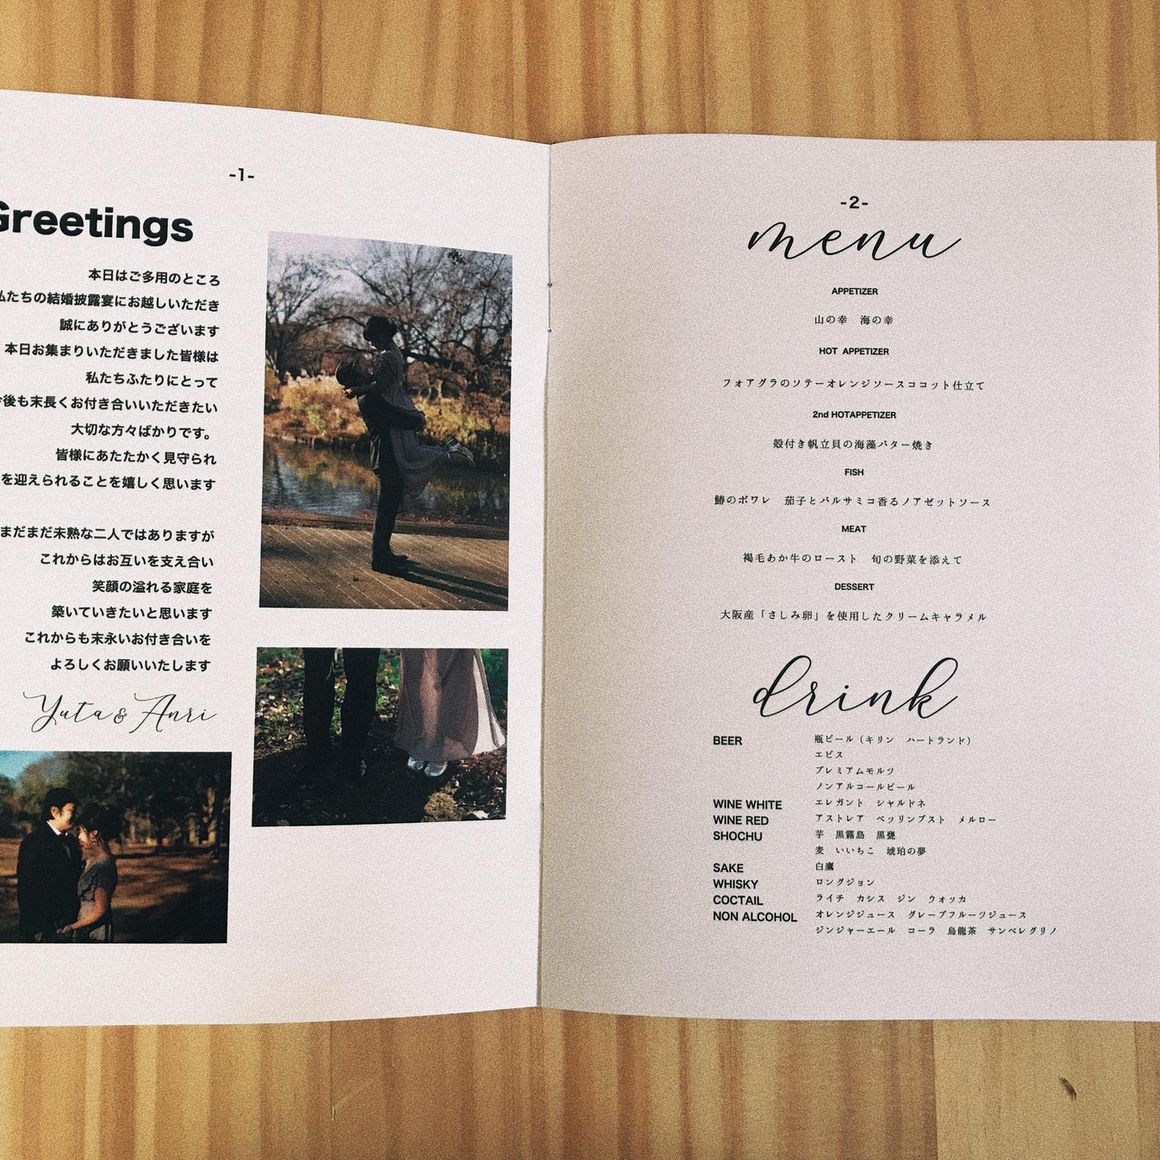 -1-
Greetings
本日はご多用のところ
私たちの結婚披露宴にお越しいただき
誠にありがとうございます
本日お集まりいただきました皆様は
私たちふたりにとって
今後も末長くお付き合いいただきたい
大切な方々ばかりです。
皆様にあたたかく見守られ
を迎えられることを嬉しく思います
まだまだ未熟な二人ではありますが
これからはお互いを支え合い
笑顔の溢れる家庭を
築いていきたいと思います
これからも末永いお付き合いを
よろしくお願いいたします
Yuta & Anri
-2-
menu
APPETIZER
山の幸　海の幸
HOT APPETIZER
フォアグラのソテーオレンジソースココット仕立て
2nd HOTAPPETIZER
殻付き帆立貝の海藻バター焼き
FISH
鰆のポワレ　茄子とバルサミコ香るノアゼットソース
MEAT
褐毛あか牛のロースト　旬の野菜を添えて
DESSERT
大阪産「さしみ卵」を使用したクリームキャラメル
drink
BEER 瓶ビール（キリン　ハートランド）
エビス
プレミアムモルツ
ノンアルコールビール
WINE WHITE エレガント　シャルドネ
WINE RED アストレア　ペッリンブスト　メルロー
SHOCHU 芋　黒霧島　黒甕
麦　いいちこ　琥珀の夢
SAKE 白鷹
WHISKY ロングジョン
COCTAIL ライチ　カシス　ジン　ウォッカ
NON ALCOHOL オレンジジュース　グレープフルーツジュース
ジンジャーエール　コーラ　烏龍茶　サンペレグリノ